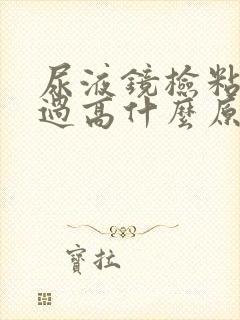 尿液鏡檢粘
過高什麼原
寶拉